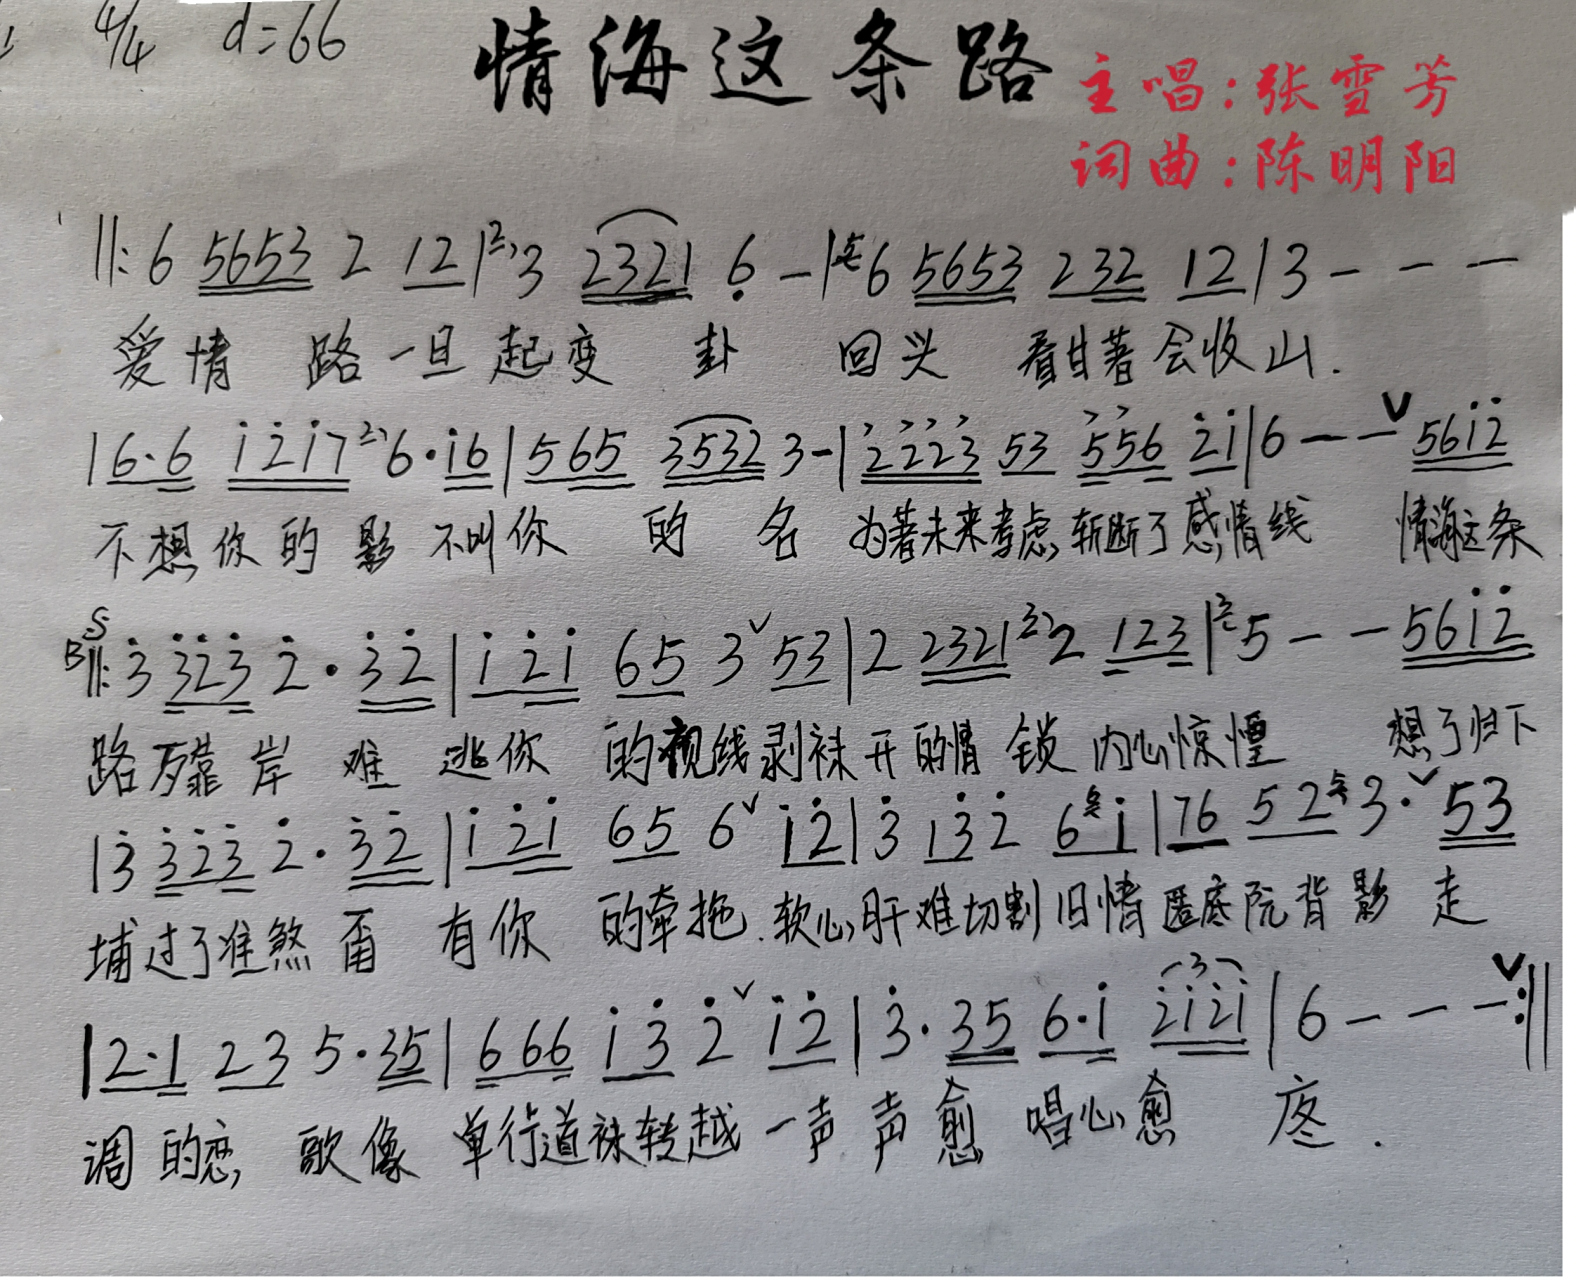 4/4 d=66
情海这条路
主唱:张雪芳
词曲:陈明阳
‖: 6 5653 2 12 | 3 2321 6̣ - | 6 5653 232 12 | 3 - - -
爱情 路一旦起变 卦 回头 看甘著会收山.
| 6·6 i̇2̇i̇7 6·i̇6 | 565 3532 3 - | 2223 53 556 2̇i̇ | 6 - - V 56i̇2̇
不想你的影 不叫你 的 名 为著未来考虑,斩断了感情线 情海这条
‖: 3̇ 3̇2̇3̇ 2̇·3̇2̇ | i̇2̇i̇ 65 3 V 53 | 2 2321 2 123 | 5 - - 56i̇2̇
路 靠岸 难 逃你 的视线剥袜开的情 锁 内心惊惶 想了归下
| 3̇ 3̇2̇3̇ 2̇·3̇2̇ | i̇2̇i̇ 65 6 V i̇2̇ | 3̇ i̇3̇ 2̇ 6i̇ | 76 52 3· V 53
埔过了准煞 有你 的牵拖.软心肝难切割旧情 底阮背影 走
| 2·1 23 5·35 | 666 i̇3̇ 2̇ V i̇2̇ | 3̇·35 6·i̇ 3 2̇i̇2̇i̇ | 6 - - - V :‖
调的恋歌像 单行道袜转越一声声愈 唱心愈 疼.